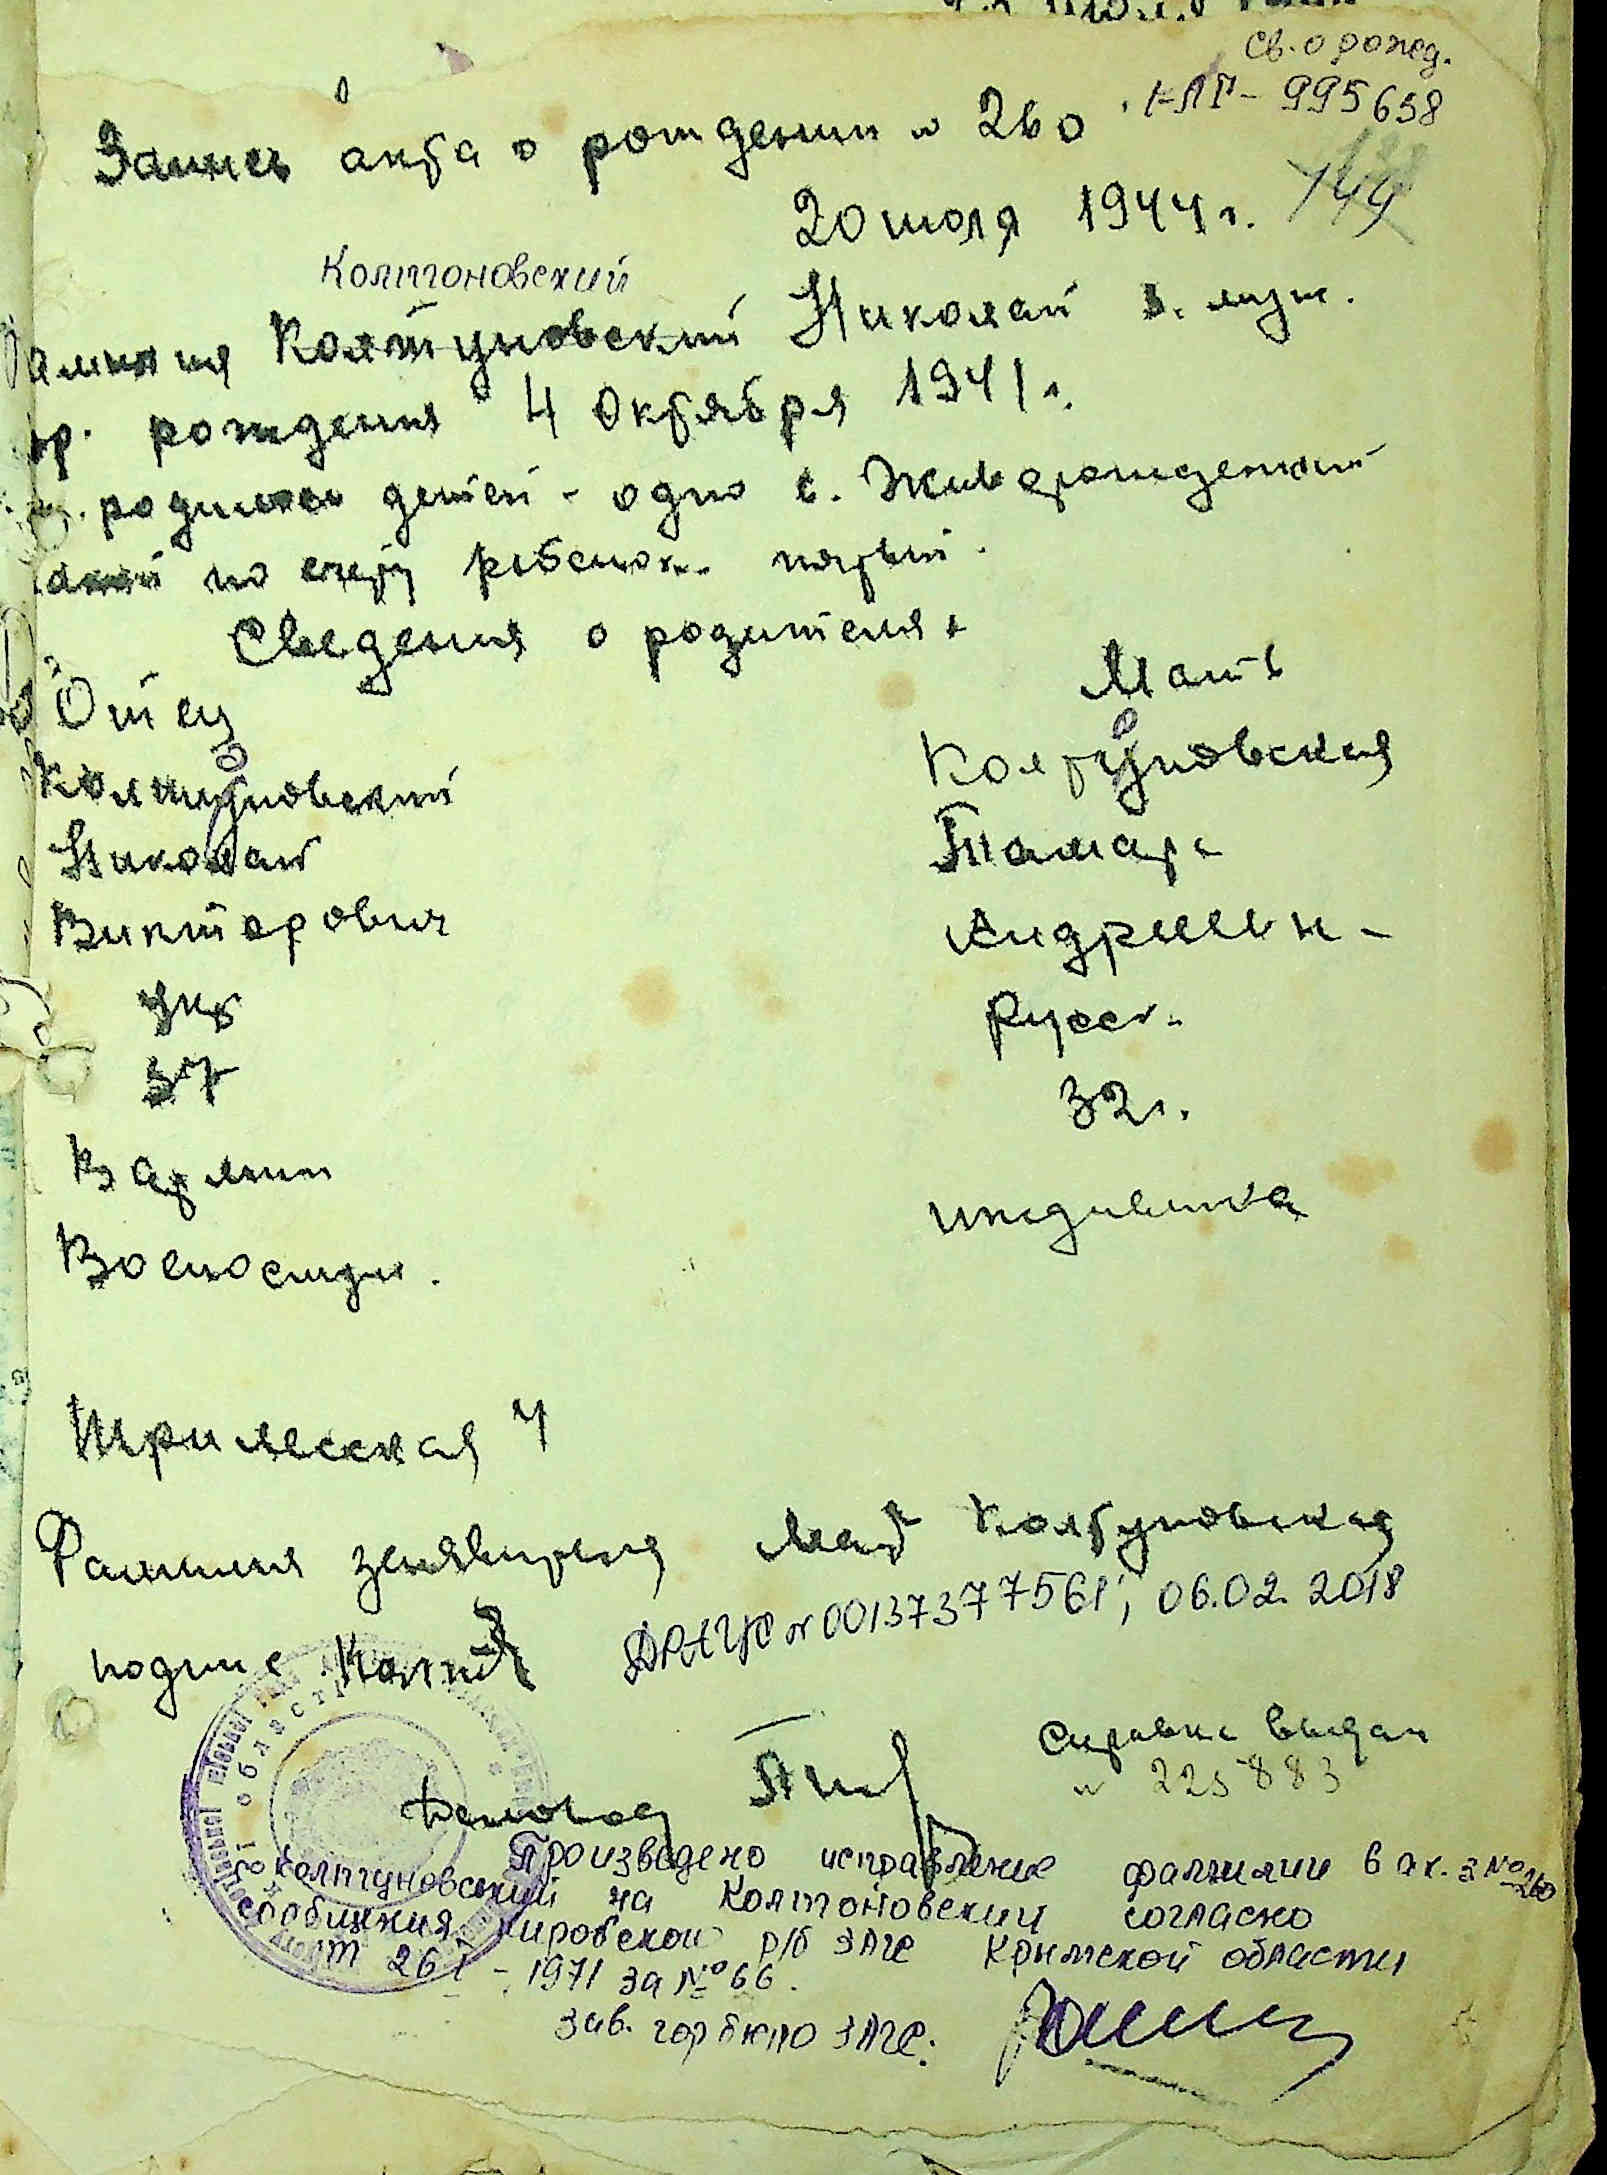 Св. о рожд.
995658
Запись акта о рождении № 260
20 июля 1944 г. 144
Колтоновский
амилия Колтуновский Николай п. муж.
вр. рождения 4 Октября 1941 г.
родилось детей - одно в. Живорожденный
по счету ребенок пятый.
Сведения о родителях
Отец Мать
Колтуновский Колтуновская
Николай Тамара
Викторович Андреевн -
укр Русск.
37 32 г.
В армии иждивенка
Военослуж.
4
Фамилия заявителя Мать Колтуновская
подпис Колт
ДРАЦС № 00137377561, 06.02.2018
Справка выдан
№ 225883
Деловод
Произведено исправление фамилии в ак. з № 260
Колтуновский на Колтоновский согласно
сообщения Кировского р/б ЗАГС Крымской области
от 26 I - 1971 за № 66.
Зав. горбюро ЗАГС: